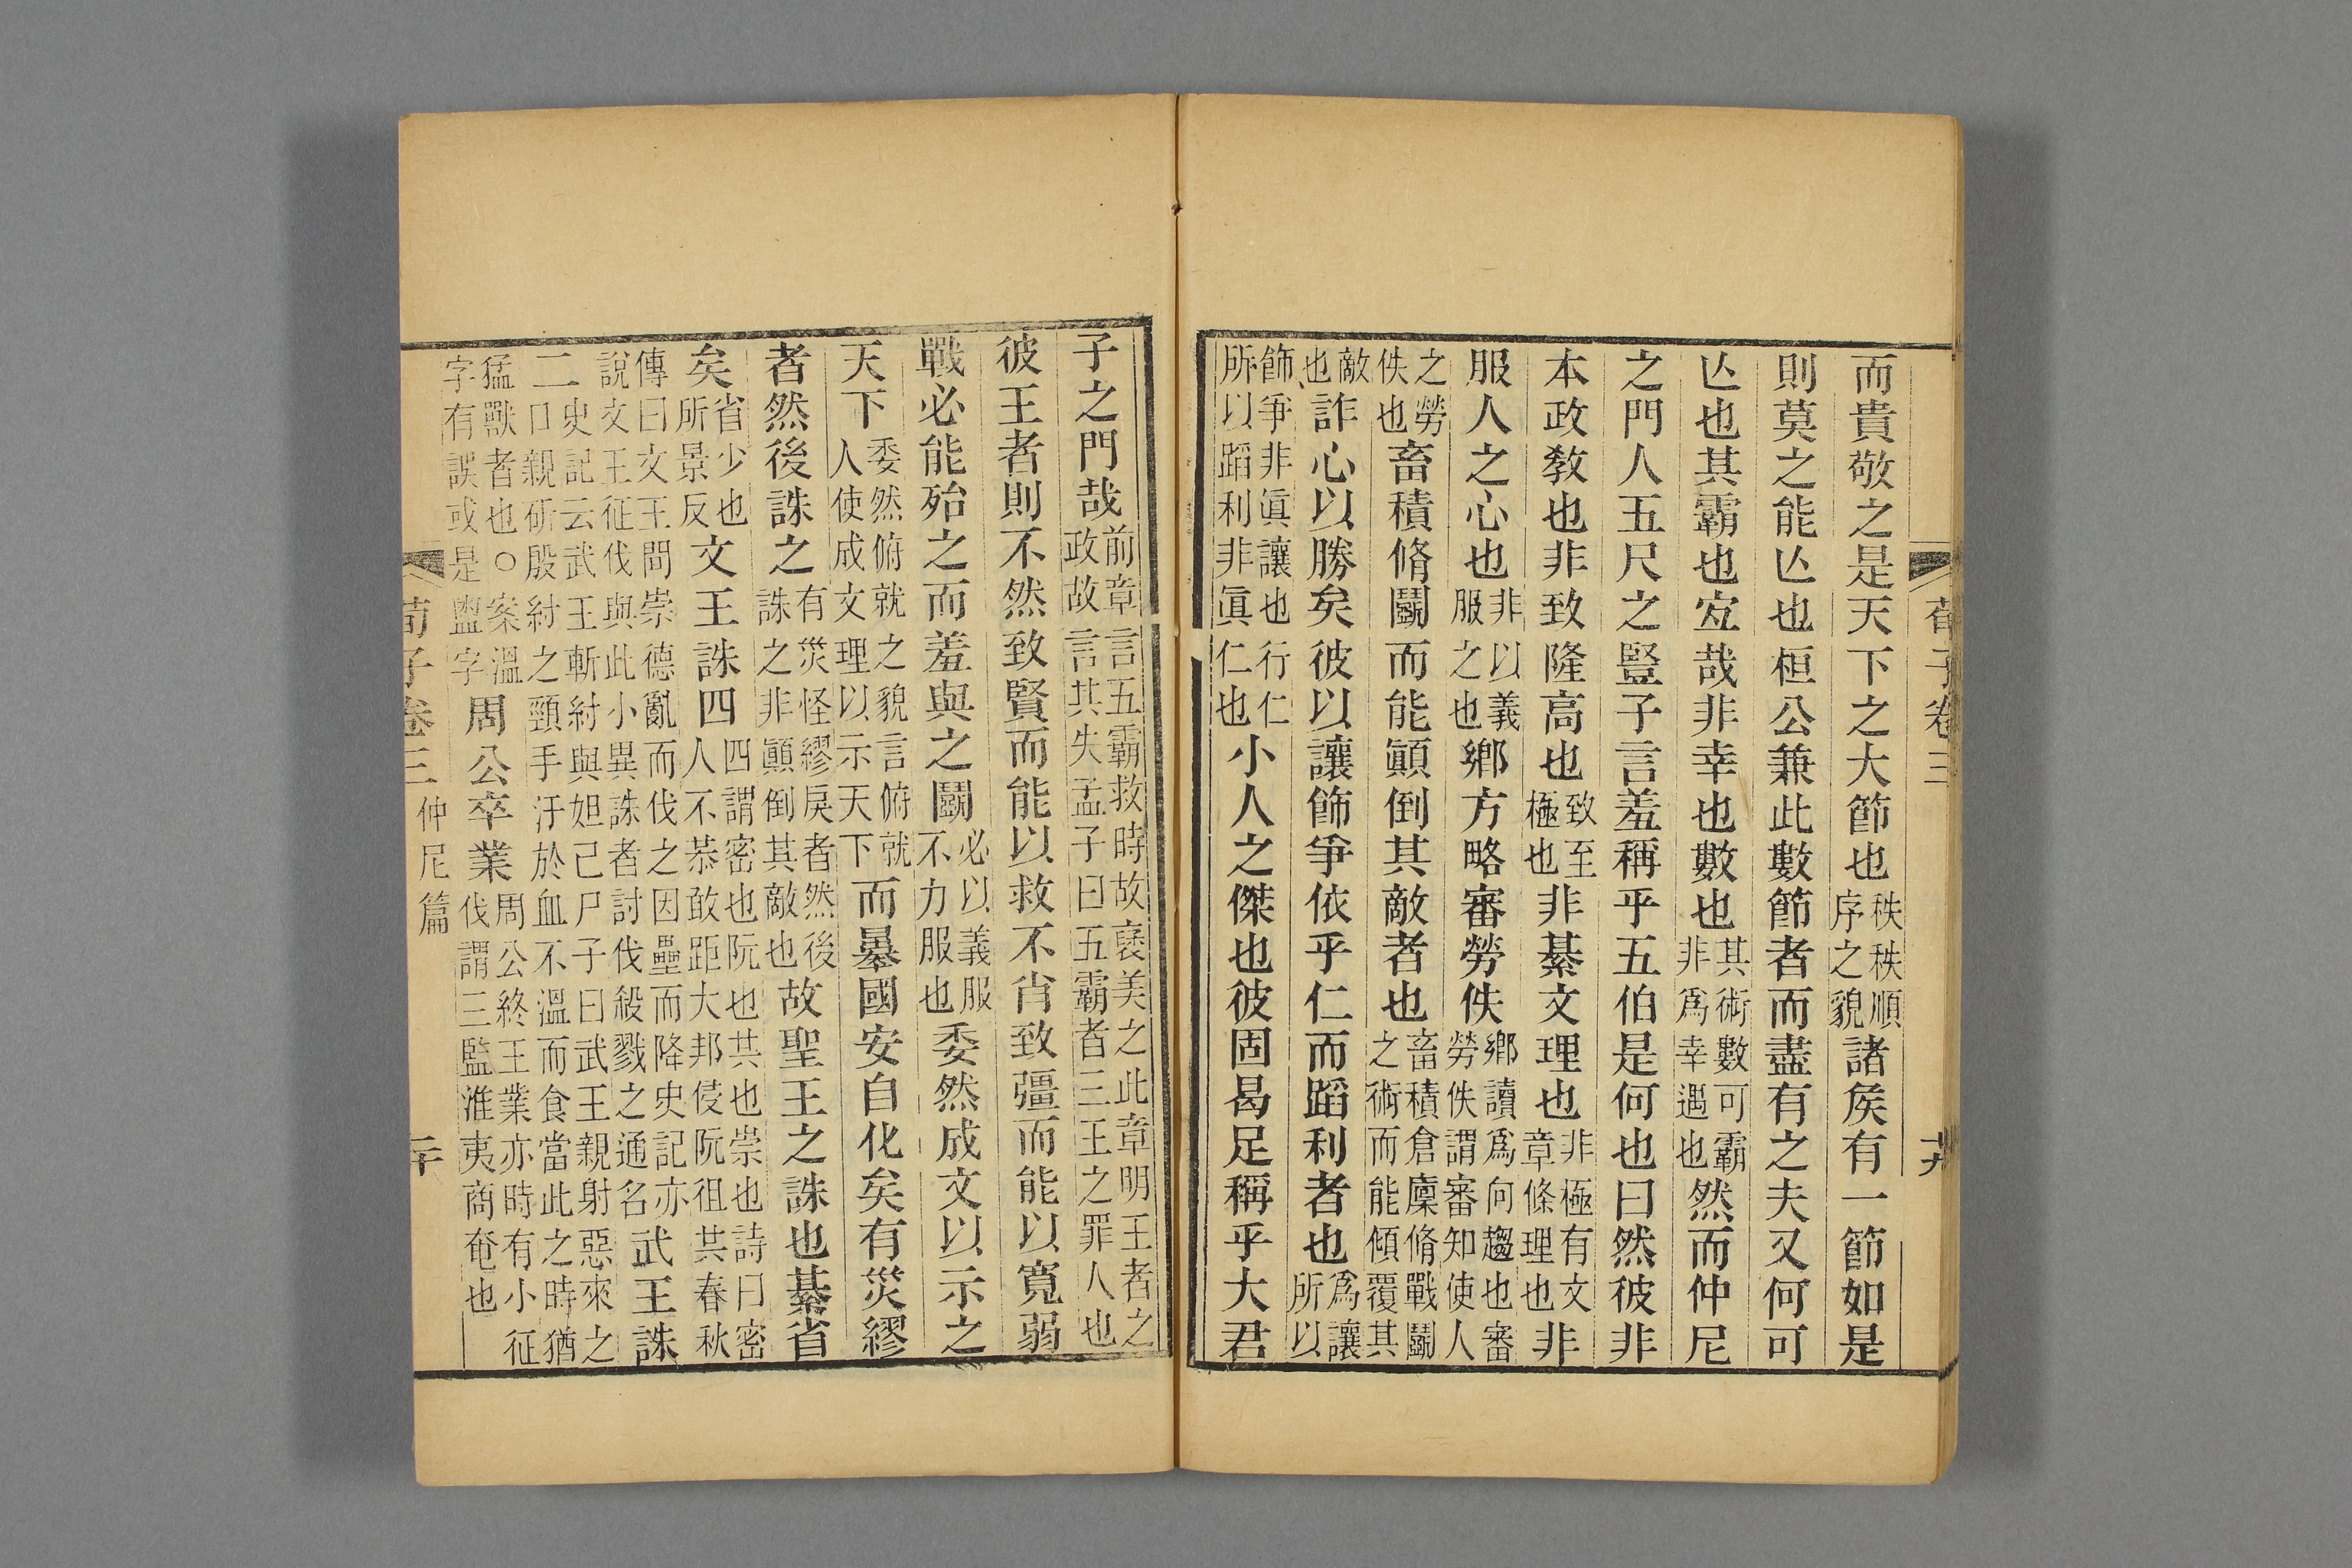 荀子卷三 十九
而貴敬之是天下之大節也秩秩順序之貌諸矦有一節如是
則莫之能亾也桓公兼此數節者而盡有之夫又何可
亾也其霸也宐哉非幸也數也其術數可霸非爲幸遇也然而仲尼
之門人五尺之豎子言羞稱乎五伯是何也曰然彼非
本政敎也非致隆高也致至極也非綦文理也非極有文章條理也非
服人之心也非以義服之也鄉方略審勞佚鄉讀爲向趨也審勞佚謂審知使人
之勞佚也畜積脩鬭而能顚倒其敵者也畜積倉廩脩戰鬭之術而能傾覆其
敵也詐心以勝矣彼以讓飾爭依乎仁而蹈利者也爲讓所以
飾爭非眞讓也行仁所以蹈利非眞仁也小人之傑也彼固曷足稱乎大君
子之門哉前章言五霸救時故襃美之此章明王者之政故言其失孟子曰五霸者三王之罪人也
彼王者則不然致賢而能以救不肖致彊而能以寬弱
戰必能殆之而羞與之鬭必以義服不力服也委然成文以示之
天下委然俯就之貌言俯就人使成文理以示天下而暴國安自化矣有災繆
者然後誅之有災怪繆戾者然後誅之非顚倒其敵也故聖王之誅也綦省
矣省少也所景反文王誅四四謂密也阮也共也崇也詩曰密人不恭敢距大邦侵阮徂共春秋
傳曰文王聞崇德亂而伐之因壘而降史記亦說文王征伐與此小異誅者討伐殺戮之通名武王誅
二史記云武王斬紂與妲己尸子曰武王親射惡來之口親斫殷紂之頸手汙於血不溫而食當此之時猶
猛獸者也○案溫字有誤或是盥字周公卒業周公終王業亦時有小征伐謂三監淮夷商奄也
荀子卷三 仲尼篇 二十